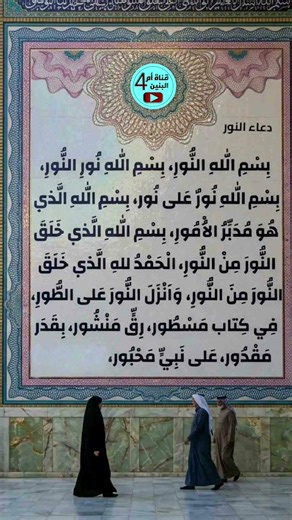 قناة أم
البنين 4
دعاء النور
بِسْمِ اللهِ النُّورِ، بِسْمِ اللهِ نُورِ النُّورِ،
بِسْمِ اللهِ نُورٌ عَلى نُور، بِسْمِ اللهِ الَّذي
هُوَ مُدَبِّرُ الْأُمُورِ، بِسْمِ اللهِ الَّذي خَلَقَ
النُّورَ مِنْ النُّورِ، الْحَمْدُ للهِ الَّذي خَلَقَ
النُّورَ مِنَ النُّورِ، وَاَنْزَلَ النُّورَ عَلى الطُّورِ،
فِي كِتاب مَسْطُور، رِقٍّ مَنْشُور، بِقَدَر
مَقْدُور، عَلى نَبِيٍّ مَحْبُور،